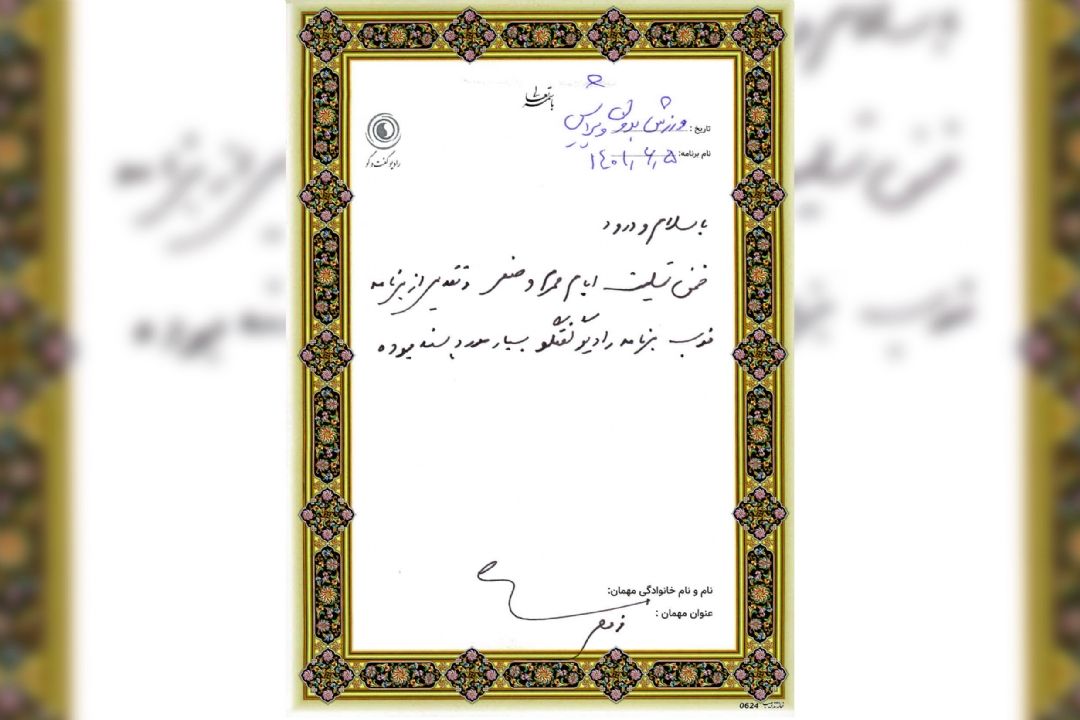 باسمه تعالی
رادیو گفت و گو
تاریخ: ورزش بدون ویرایش
نام برنامه: ۱۴۰۱/۶/۵
با سلام و درود
ضمن تسلیت ایام محرم و صفر و تقدیر از برنامه
خوب برنامه رادیو گفتگو بسیار مورد پسند بوده
نام و نام خانوادگی مهمان:
عنوان مهمان:
0624